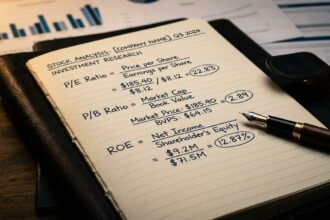 STOCK ANALYSIS [COMPANY NAME] Q3 2024
INVESTMENT RESEARCH
P/E Ratio = Price per Share / Earnings per Share
= $185.40 / $8.12 = 22.83
$8.12
P/B Ratio = Market Cap / Book Value
= Market Price: $185.40 / BVPS: $64.15 = 2.89
ROE = Net Income / Shareholder's Equity
= $9.2M / $71.5M = 12.87%